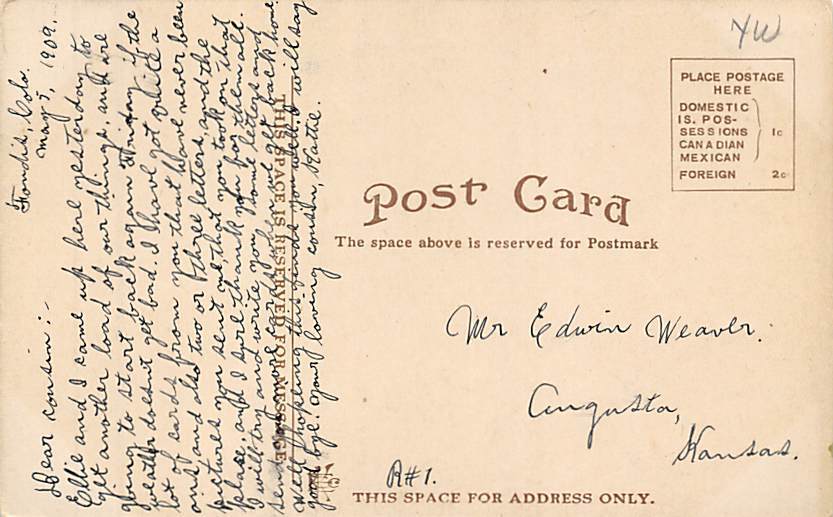 Fondis, Colo.
May 5, 1909.
Dear cousin:-
Ellie and I came up here yesterday to
get another load of our things, and are
going to start back again Friday if the
weather doesn't get bad. I have got quite a
lot of cards from you that have never been
and also two or three letters, and the
pictures you sent me, that you took on that
place, and I sure thank you for them all.
I will try and write you some letters and
send you some cards when I get back home.
Well hopeing this finds you well, I will say
good bye. Your loving cousin, Katie.
THIS SPACE IS RESERVED FOR MESSAGE
YW
PLACE POSTAGE
HERE
DOMESTIC
IS. POS-
SESSIONS 1c
CANADIAN
MEXICAN
FOREIGN 2c
Post Card
The space above is reserved for Postmark
Mr Edwin Weaver.
Augusta,
Kansas.
R#1.
THIS SPACE FOR ADDRESS ONLY.